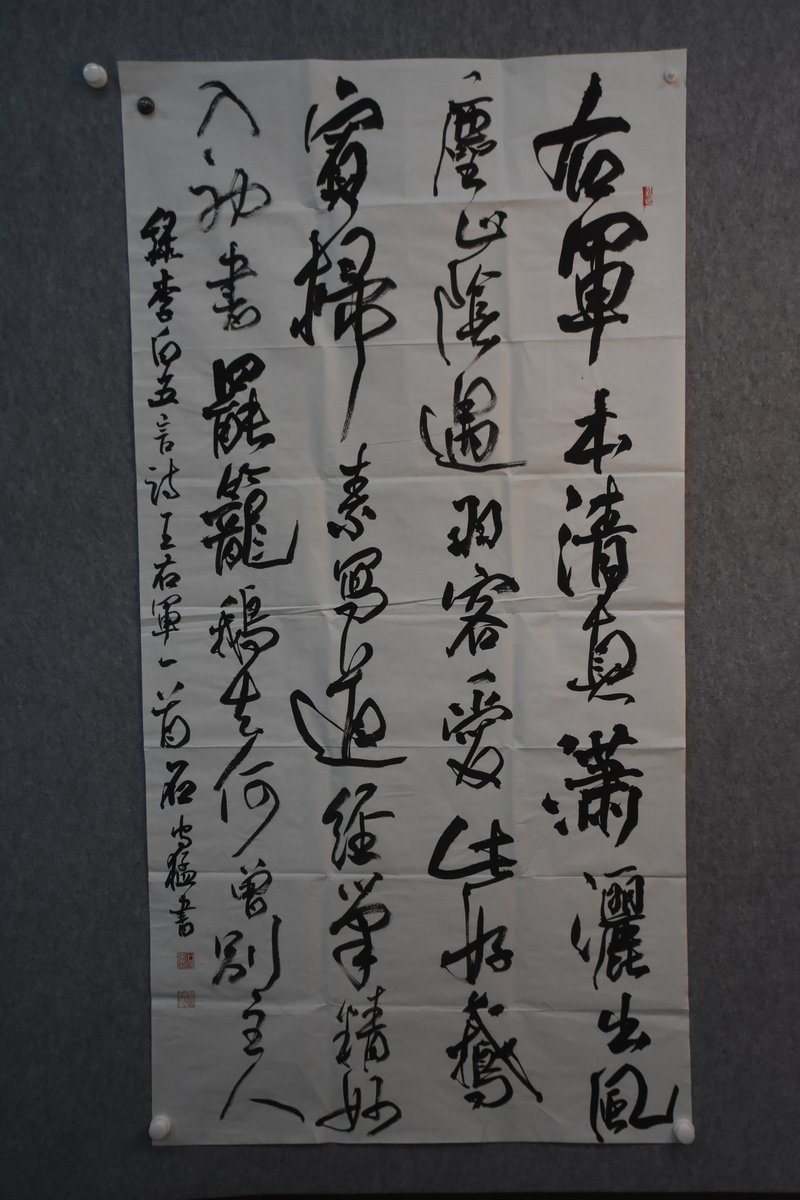 右軍本清真瀟灑出風
塵山陰遇羽客愛此好鵞
賓掃素寫道經筆精妙
入神書罷籠鵝去何曾別主人
錄李白五言詩王右軍一首石猛書